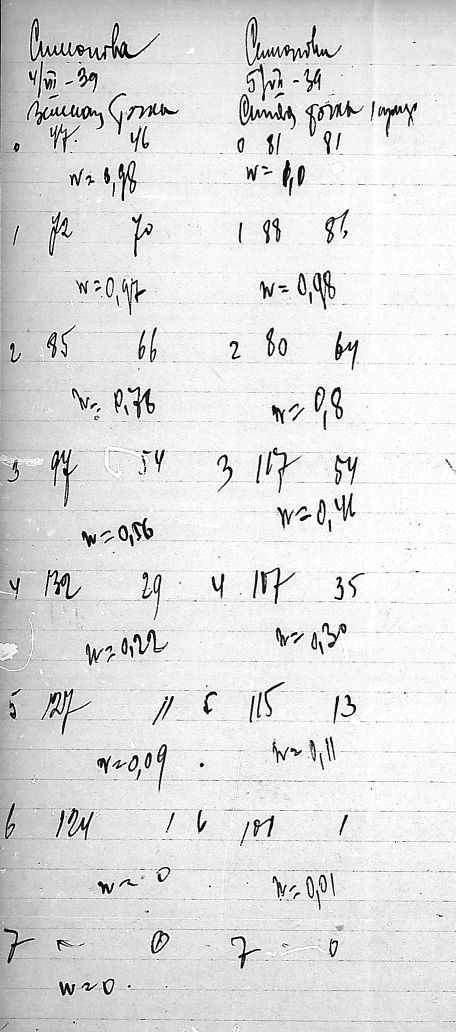 Симонова Симонова
4/VII - 39 5/VII - 39
Зелёная точка Синяя точка
0 47 46 0 81 81
n = 0,98 n = 1,0
1 72 70 1 88 86
n = 0,97 n = 0,98
2 85 66 2 80 64
n = 0,78 n = 0,8
3 97 54 3 117 54
n = 0,56 n = 0,46
4 132 29 4 117 35
n = 0,22 n = 0,30
5 127 11 5 115 13
n = 0,09 n = 0,11
6 124 1 6 101 1
n = 0 n = 0,01
7 - 0 7 - 0
n = 0